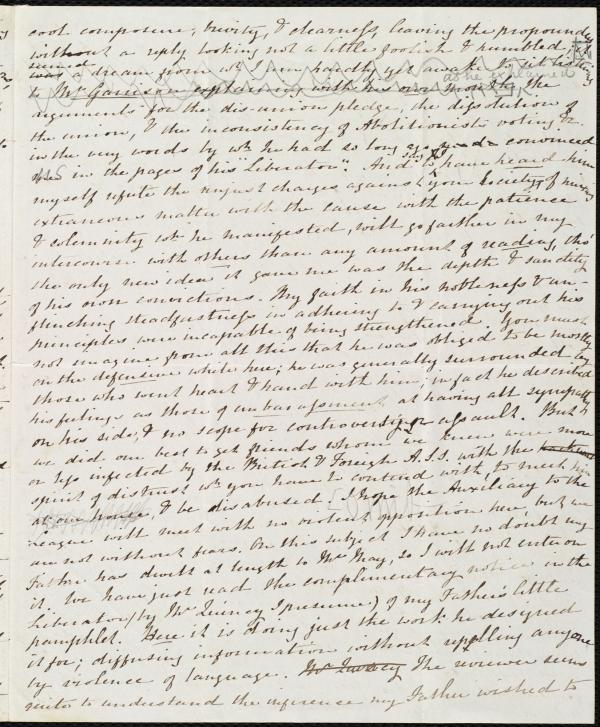 cool composure, brevity, & clearness, leaving the propounder
without a reply looking not a little foolish & humbled;
was a dream from wh I am hardly yet awake. To listen
to Mr Garrison explaining with his own mouth, the as he explained
arguments for the dis-union pledge, the dissolution of
the union, & the inconsistency of Abolitionists voting &c
in the very words by wh he had so long ago convinced
us in the pages of his "Liberator". And to have heard him
myself refute the unjust charges against your Society of mixing
extraneous matter with the cause with the patience
& solemnity wh he manifested, will go farther in my
intercourse with others than any amount of reading, tho'
the only new idea it gave me was the depth & sanctity
of his own convictions. My faith in his nobleness & un-
flinching steadfastness in adhering to & carrying out his
principles were incapable of being strengthened. You must
not imagine from all this that he was obliged to be mostly
on the defensive while here; he was generally surrounded by
those who went heart & hand with him; in fact he described
his feelings as those of embarassment at having all sympathy
on his side, & no scope for controversy or assault. But
we did our best to get friends whom we knew were more
or less infected by the British & Foreign A.S.S. with the
spirit of distrust wh you have to contend with, to meet him
at our house, & be disabused. I hope the Auxiliary to the
league will meet with no violent opposition here, but we
are not without fears. On this subject I have no doubt my
Father has dwelt at length to Mr May, so I will not enter on
it. We have just read the complimentary notice in the
Liberator (by Mr Quincy I presume) of my Father's little
pamphlet. Here it is doing just the work he designed
it for; diffusing information without repelling anyone
by violence of language. Mr Quincy The reviewer seems
quite to understand the inference my Father wished to